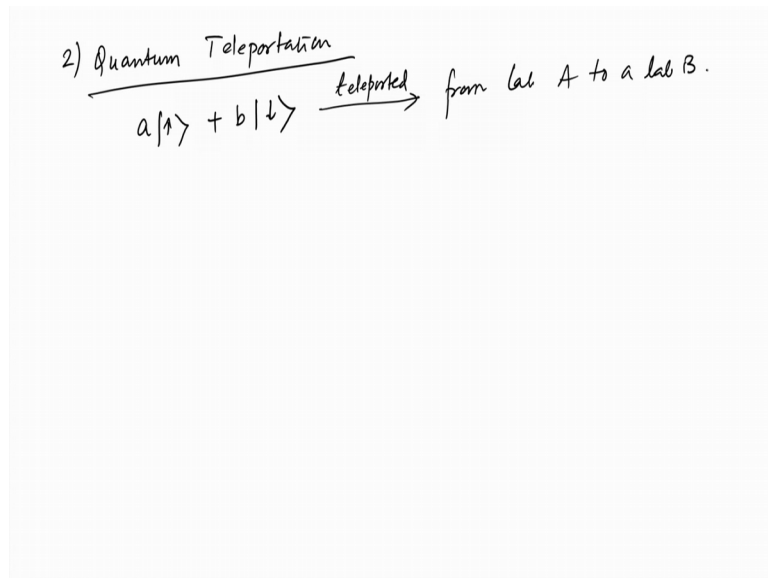 2) Quantum Teleportation
a|↑> + b|↓> teleported → from lab A to a lab B.